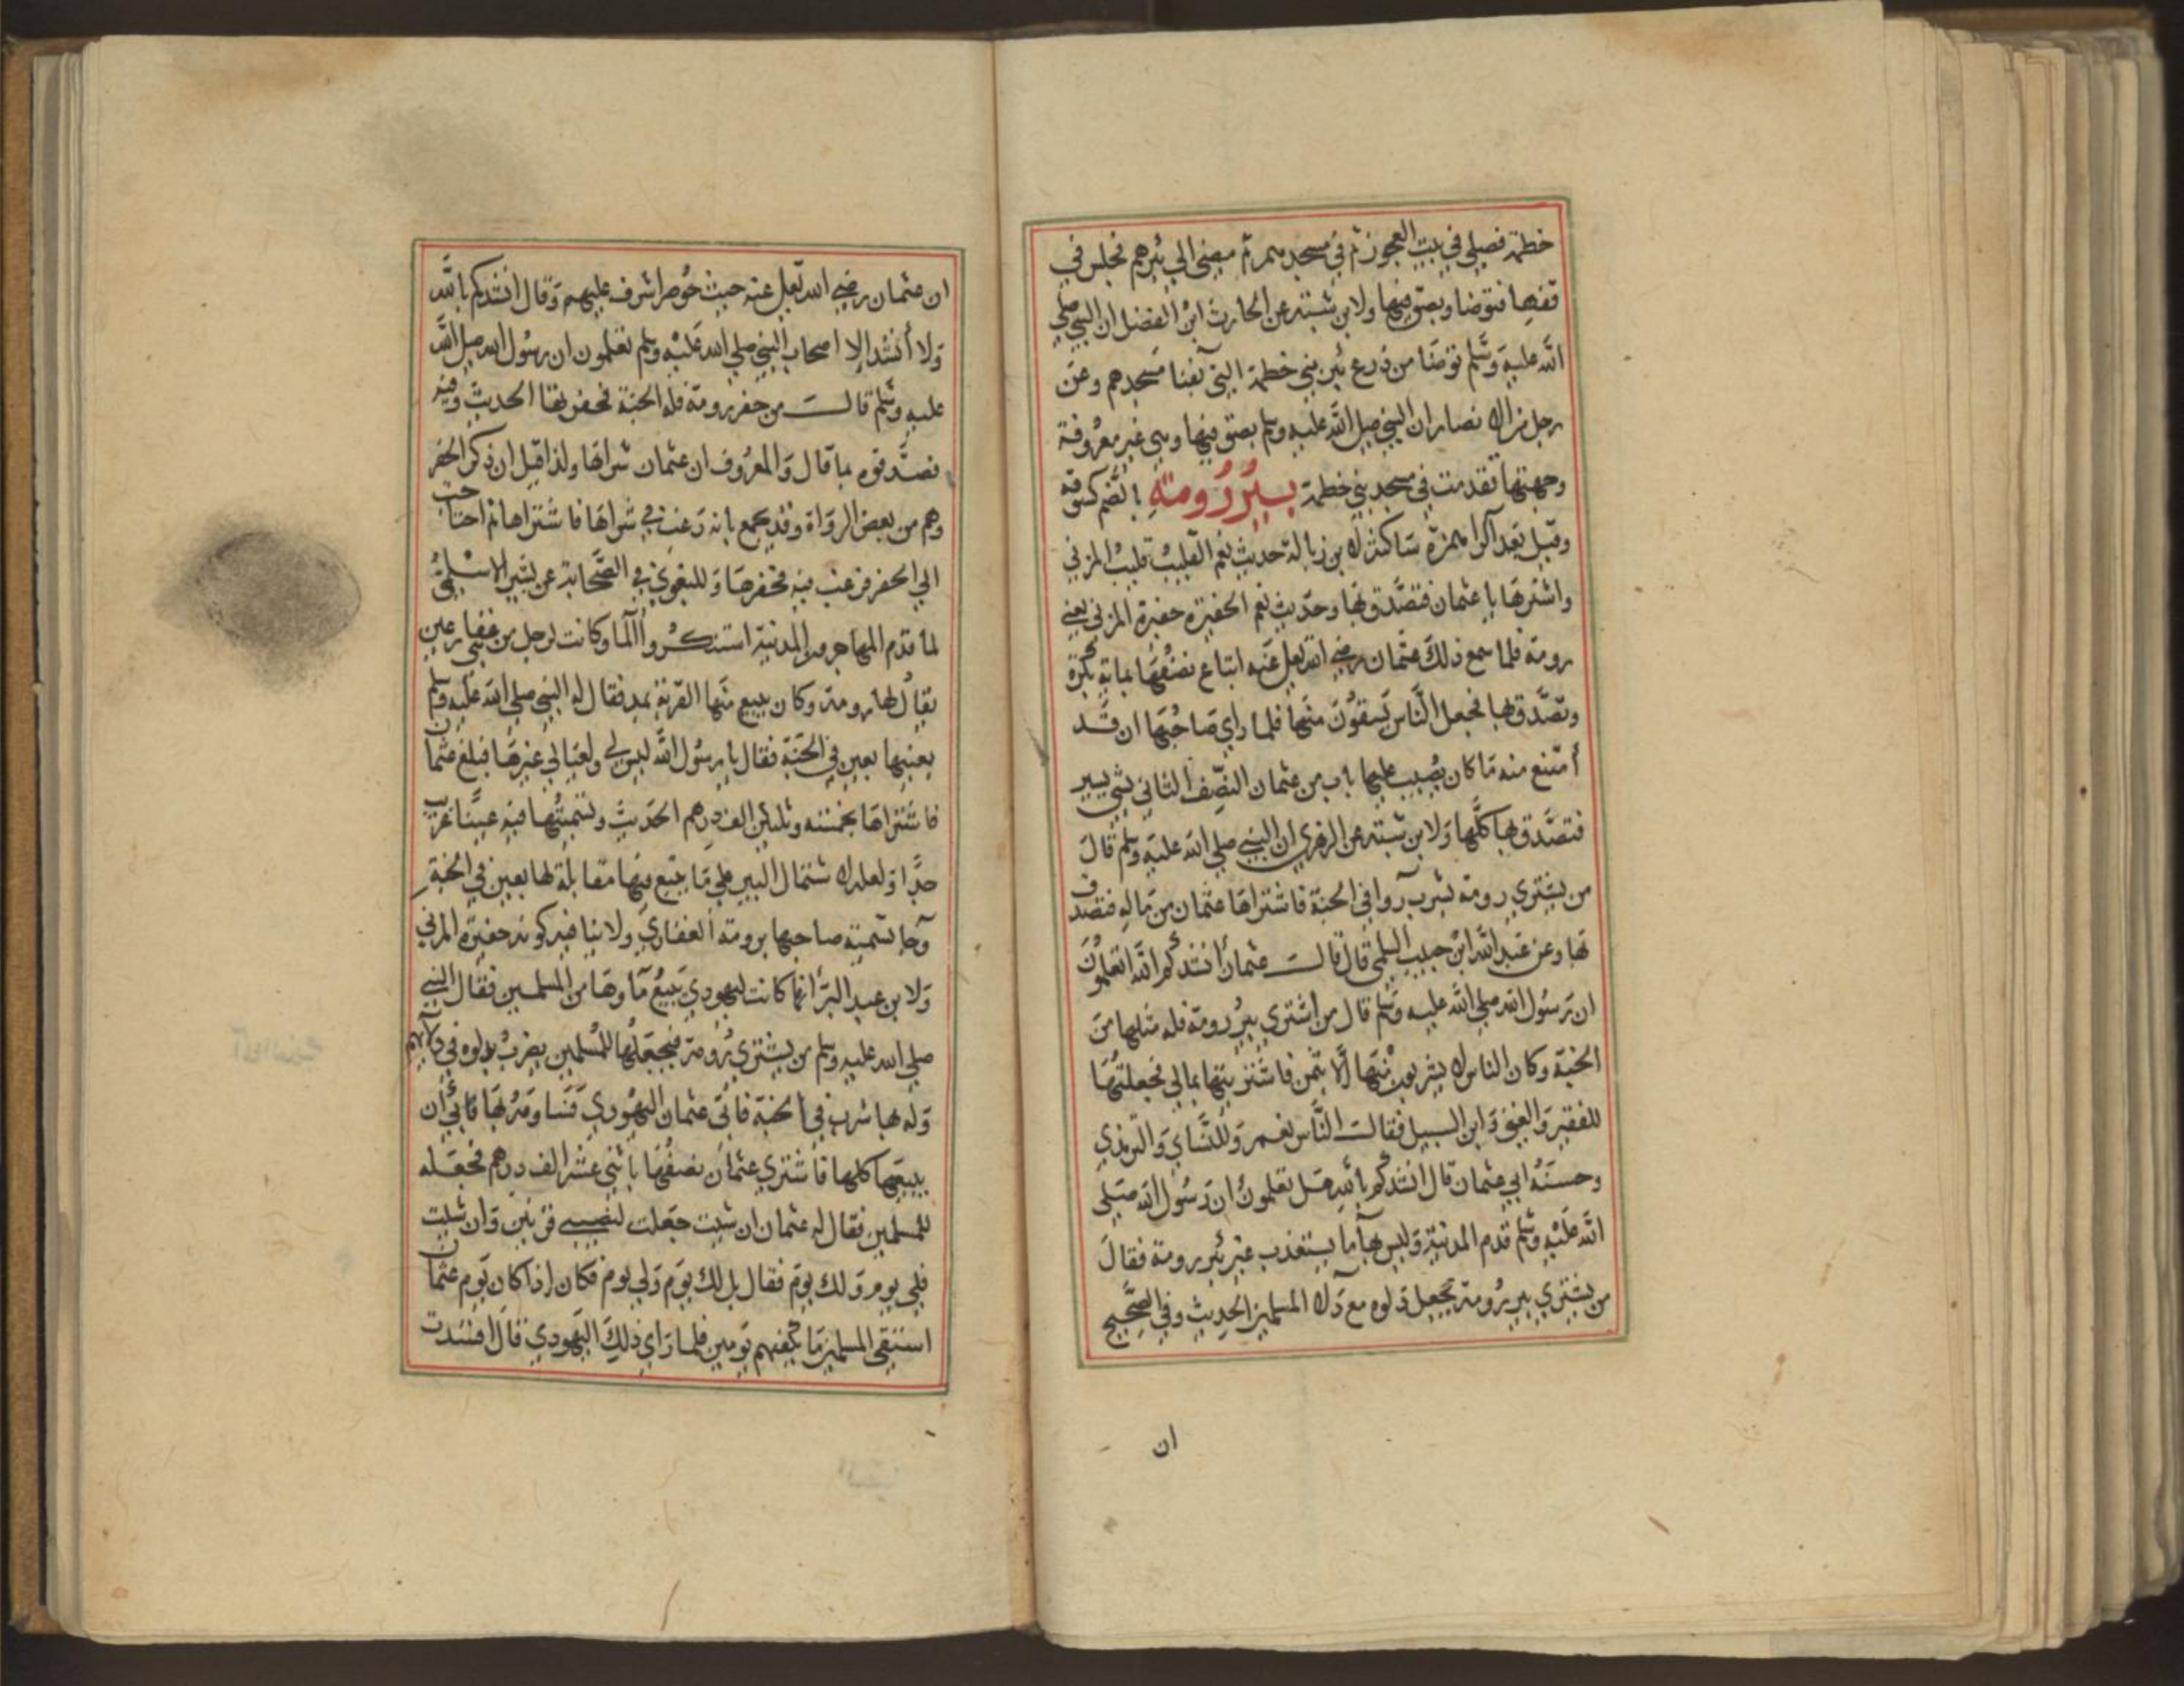 خطمة فصلي في بيت العجوز ثم في مسجدهم ثم مضى الي بئرهم فجلس في
قفها فتوضا وبصق فيها ولابن شبة عن الحارث ابن الفضل ان النبي صلي
الله عليه وسلم توضا من ذرع بئر بني خطمة التي بفنا مسجدهم وعن
رجل من الانصار ان النبي صلي الله عليه وسلم بصق فيها وهي غير معروفة
وجهتها تقدمت في مسجد بني خطمة بئر رومة بالضم كسوقة
وقيل بعد الرا همزة ساكنة لابن زبالة حديث نعم القليب قليب المزني
واشترها يا عثمان فتصدق بها وحديث نعم الحفيرة حفيرة المزني يعني
رومة فلما سمع ذلك عثمان رضي الله تعلي عنه ابتاع نصفها بماية بكرة
وتصدق بها فجعل الناس يسقون منها فلما راي صاحبها ان قد
أمتنع منه ما كان يصيب عليها باع من عثمان النصف الثاني بشي يسير
فتصدق بها كلها ولابن شبة عن الزهري ان النبي صلي الله عليه وسلم قال
من يشتري رومة بشرب روا في الجنة فاشتراها عثمان من ماله فتصدق
بها وعن عبد الله ابن حبيب السلمي قال قالت عثمان أنشدكم الله اتعلمون
ان رسول الله صلي الله عليه وسلم قال من اشتري بئر رومة فله مثلها من
الجنة وكان الناس لا يشربون منها الا بثمن فاشتريتها بمالي فجعلتها
للفقير والغني وابن السبيل فقالت الناس نعم وللنساي والترمذي
وحسنه ابي عثمان قال انشدكم بالله هل تعلمون ان رسول الله صلي
الله عليه وسلم قدم المدينة وليس بها ما يستعذب غير بئر رومة فقال
من يشتري بير رومة يجعل دلوه مع دلا المسلمين الحديث وفي الصحيح
ان
ان عثمان رضي الله تعلي عنه حيث حوصر اشرف عليهم وقال انشدكم بالله
ولا أنشد الا اصحاب النبي صلي الله عليه وسلم تعلمون ان رسول الله صلي الله
عليه وسلم قالت من حفر رومة فله الجنة فحفرتها الحديث وفيه
فصدقوه بما قال والمعروف ان عثمان شراها ولذا قيل ان ذكر الحفر
وهم من بعض الرواة وقد يجمع بانه رغب في شراها فاشتراها ثم احتاجت
الي الحفر فرغب فيه فحفرها وللبغوي في الصحابة عن بشير الاسلمي
لما قدم المهاجرون المدينة استنكروا الما وكانت لرجل من بني غفار عين
يقال لها رومة وكان يبيع منها القربة بمد فقال له النبي صلي الله عليه وسلم
بعنيها بعين في الجنة فقال يا رسول الله ليس لي ولعيالي غيرها فبلغ عثمان
فاشتراها بخمسة وثلثين الف درهم الحديث وتسميتها فيه عينا غريب
جدا ولعله لاشتمال البير علي ما ينبع فيها مقابلة لها بعين في الجنة
وجا تسمية صاحبها برومة الغفاري ولا ينا فيه كونه حفيرة المزني
ولابن عبد البر أنها كانت ليهودي يبيع ماوها من المسلمين فقال النبي
صلي الله عليه وسلم من يشتري رومة فيجعلها للمسلمين يضرب بدلوه في دلائهم
وله بها شرب في الجنة فاتى عثمان اليهودي فساومه بها فابي أن
يبيعها كلها فاشتري عثمان نصفها باثني عشر الف درهم فجعله
للمسلمين فقال له عثمان ان شيت جعلت لنصيبي قربتين وان شيت
فلي يوم ولك يوم فقال بل لك يوم ولي يوم فكان اذا كان يوم عثمان
استقي المسلمين ما يكفيهم يومين فلما راي ذلك اليهودي قال افسدت